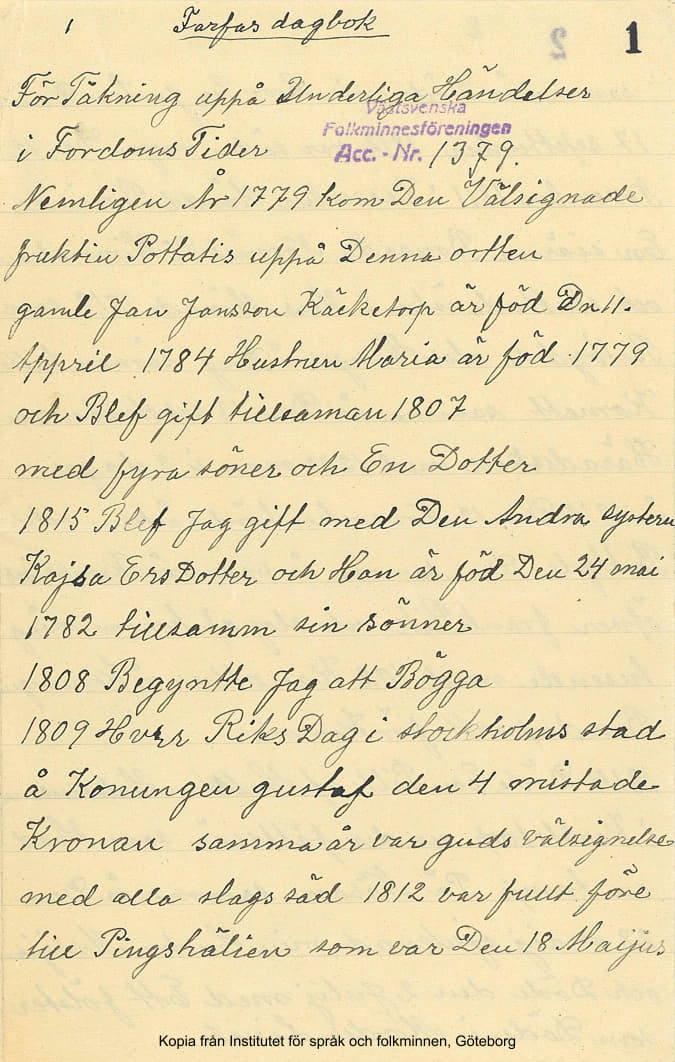 1 Farfars dagbok 1
För Täkning uppå Underliga Händelser
Västsvenska
Folkminnesföreningen
i Fordoms Tider Acc. - Nr. 1379.
Nemligen År 1779 kom Den Välsignade
fruktin Pottatis uppå Denna ortten
gamle Jan Jansson Käcketorp är föd Dn 11.
Appril 1784 Hustrun Maria är föd 1779
och Blef gift tillsaman 1807
med fyra söner och En Dotter
1815 Blef Jag gift med Den Andra systeru
Kajsa Ers Dotter och Han är föd Den 24 mai
1782 tillsamm sin sönner
1808 Begyntte Jag att Bögga
1809 Hvar Riks Dag i stockholms stad
å Konungen gustaf den 4 mistade
Kronan samma år var guds välsignelse
med alla slags säd 1812 var fullt före
till Pingshälien som var Den 18 Maijus
Kopia från Institutet för språk och folkminnen, Göteborg